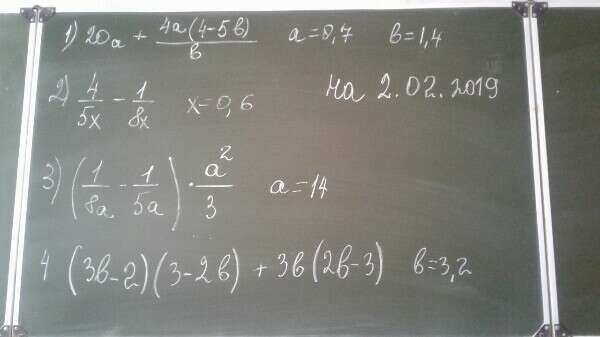 1) 20a + 4a(4-5b)/b a=8,7 b=1,4
2) 4/5x - 1/8x x=0,6
на 2.02.2019
3) (1/8a - 1/5a) · a²/3 a=14
4 (3b-2)(3-2b) + 3b(2b-3) b=3,2